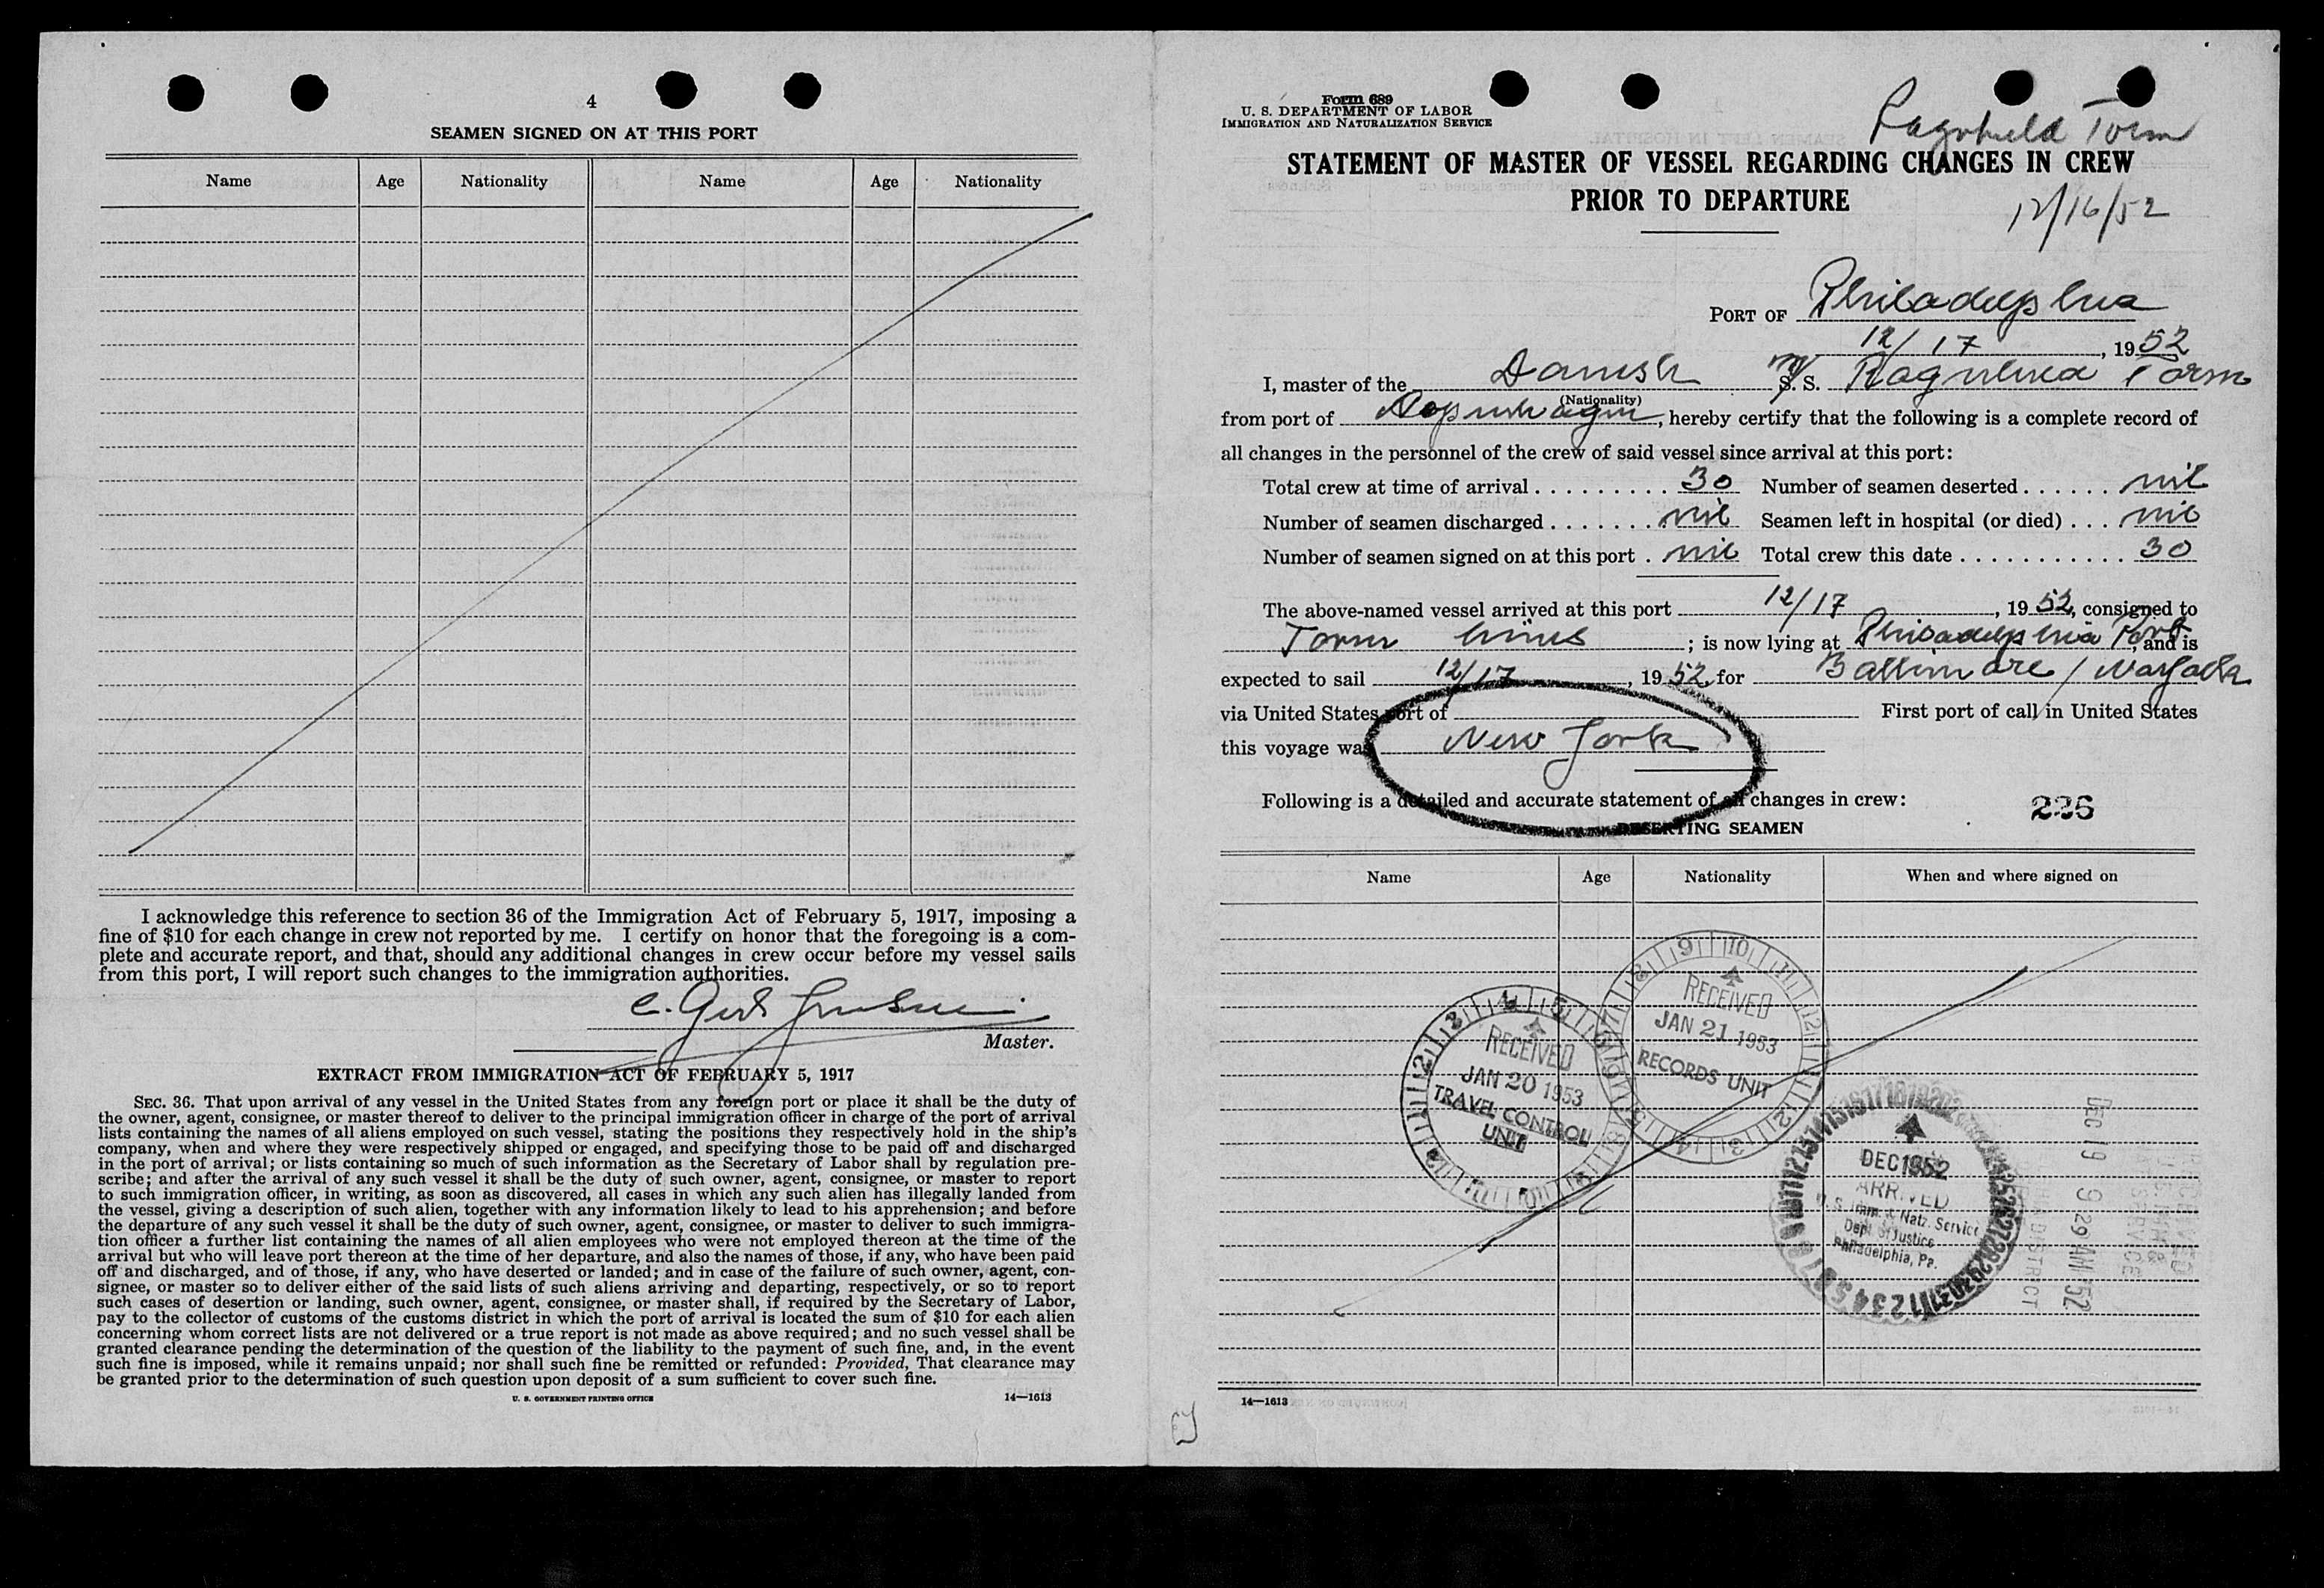 4
SEAMEN SIGNED ON AT THIS PORT
Name Age Nationality Name Age Nationality
I acknowledge this reference to section 36 of the Immigration Act of February 5, 1917, imposing a
fine of $10 for each change in crew not reported by me. I certify on honor that the foregoing is a com-
plete and accurate report, and that, should any additional changes in crew occur before my vessel sails
from this port, I will report such changes to the immigration authorities.
C.
Master.
EXTRACT FROM IMMIGRATION ACT OF FEBRUARY 5, 1917
SEC. 36. That upon arrival of any vessel in the United States from any foreign port or place it shall be the duty of
the owner, agent, consignee, or master thereof to deliver to the principal immigration officer in charge of the port of arrival
lists containing the names of all aliens employed on such vessel, stating the positions they respectively hold in the ship's
company, when and where they were respectively shipped or engaged, and specifying those to be paid off and discharged
in the port of arrival; or lists containing so much of such information as the Secretary of Labor shall by regulation pre-
scribe; and after the arrival of any such vessel it shall be the duty of such owner, agent, consignee, or master to report
to such immigration officer, in writing, as soon as discovered, all cases in which any such alien has illegally landed from
the vessel, giving a description of such alien, together with any information likely to lead to his apprehension; and before
the departure of any such vessel it shall be the duty of such owner, agent, consignee, or master to deliver to such immigra-
tion officer a further list containing the names of all alien employees who were not employed thereon at the time of the
arrival but who will leave port thereon at the time of her departure, and also the names of those, if any, who have been paid
off and discharged, and of those, if any, who have deserted or landed; and in case of the failure of such owner, agent, con-
signee, or master so to deliver either of the said lists of such aliens arriving and departing, respectively, or so to report
such cases of desertion or landing, such owner, agent, consignee, or master shall, if required by the Secretary of Labor,
pay to the collector of customs of the customs district in which the port of arrival is located the sum of $10 for each alien
concerning whom correct lists are not delivered or a true report is not made as above required; and no such vessel shall be
granted clearance pending the determination of the question of the liability to the payment of such fine, and, in the event
such fine is imposed, while it remains unpaid; nor shall such fine be remitted or refunded: Provided, That clearance may
be granted prior to the determination of such question upon deposit of a sum sufficient to cover such fine.
U. S. GOVERNMENT PRINTING OFFICE 14—1613
Form 689
U. S. DEPARTMENT OF LABOR
IMMIGRATION AND NATURALIZATION SERVICE
Ragnhild Torm
STATEMENT OF MASTER OF VESSEL REGARDING CHANGES IN CREW
PRIOR TO DEPARTURE
12/16/52
PORT OF Philadelphia
12/17, 1952
I, master of the Danish M/S. S. Ragnhild Torm
(Nationality)
from port of Copenhagen, hereby certify that the following is a complete record of
all changes in the personnel of the crew of said vessel since arrival at this port:
Total crew at time of arrival . . . . . . . . . 30 Number of seamen deserted . . . . . . nil
Number of seamen discharged . . . . . . . nil Seamen left in hospital (or died) . . . nil
Number of seamen signed on at this port . nil Total crew this date . . . . . . . . . . . . 30
The above-named vessel arrived at this port 12/17, 1952, consigned to
Torm Lines; is now lying at Philadelphia Port, and is
expected to sail 12/17, 1952, for Baltimore / Norfolk
via United States port of First port of call in United States
this voyage was New York
Following is a detailed and accurate statement of all changes in crew:
226
DESERTING SEAMEN
Name Age Nationality When and where signed on
9 10 11 12
RECEIVED
JAN 21 1953
RECORDS UNIT
RECEIVED
JAN 20 1953
TRAVEL CONTROL
UNIT
DEC 1952
ARRIVED
U. S. Imm. & Natz. Service
Dept. of Justice
Philadelphia, Pa.
DEC 19 9 29 AM '52
DISTRICT
14—1613